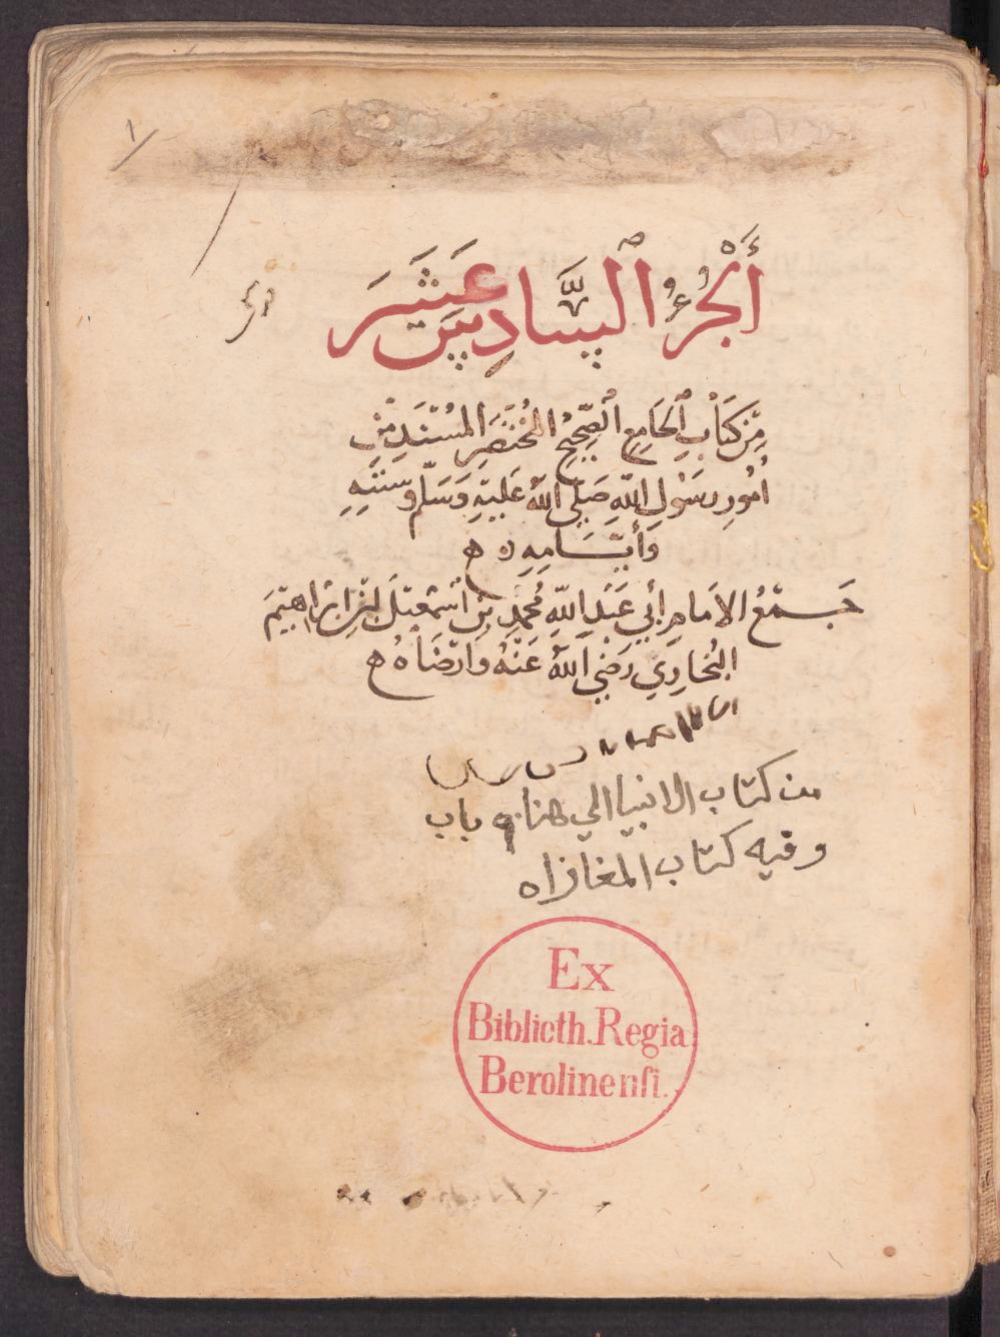 ١
الْجُزْءُ السَّادِسَ عَشَرَ
مِنْ كِتَابِ الْجَامِعِ الصَّحِيحِ المُخْتَصَرِ المُسْنَدِ مِنْ
أُمُورِ رَسُولِ اللهِ صَلَّى اللهُ عَلَيْهِ وَسَلَّم وَسُنَنِهِ
وَأَيَّامِهِ ه ه
جَمْعُ الامَامِ أَبِي عَبْدِ اللهِ مُحَمَّدِ بْنِ اسْمعِيلَ ابْنِ ابْرَاهِيمَ
البُخَارِي رَضِيَ اللهُ عَنْهُ وَارْضَاهُ ه
من كتاب الانبيا الي هنا باب
وفيه كتاب المغازاه
Ex
Biblioth. Regia
Berolinensi.